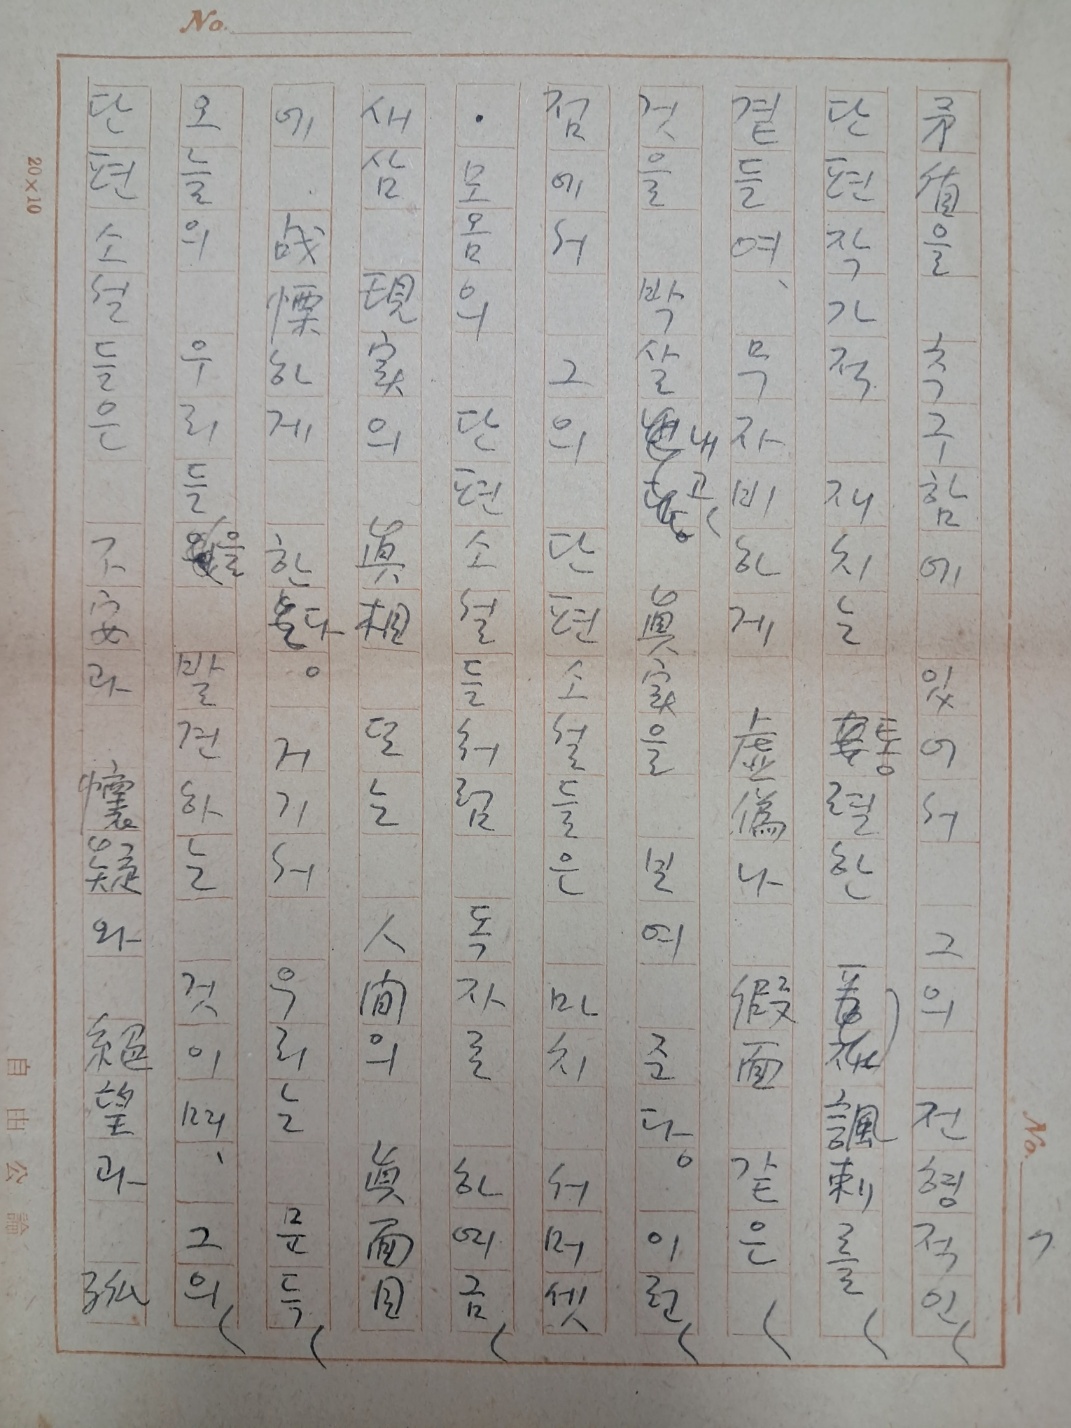 No.
No. 7
価値을 추구함에 있어서 그의 전형적인
단편작가적 재치는 통렬한 諷刺를
곁들여、무자비하게 虛僞나 假面 같은
것을 박살내고 眞実을 보여 준다。이런
점에서 그의 단편소설들은 마치 서머셋
·모옴의 단편소설들처럼 독자로 하여금
새삼 現実의 眞相 또는 人間의 眞面目
에 戰慄하게 한다。거기서 우리는 문득
오늘의 우리들을 발견하는 것이며、그의
단편소설들은 不安과 懷疑와 絕望과 孤
20×10
自由公論